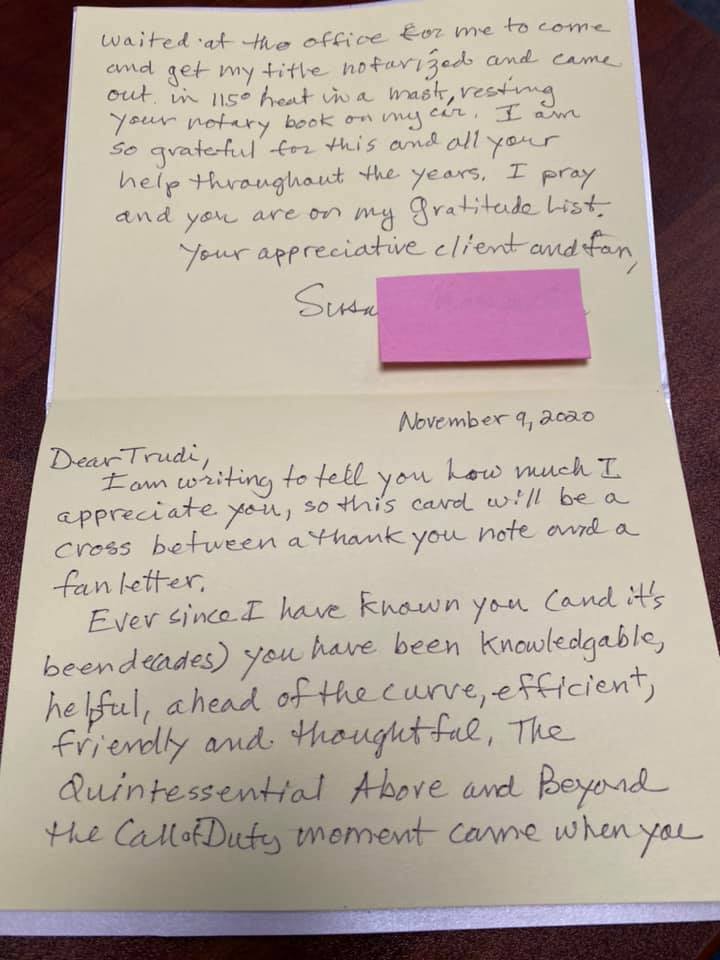 November 9, 2020
Dear Trudi,
I am writing to tell you how much I
appreciate you, so this card will be a
cross between a thank you note and a
fan letter.
Ever since I have known you (and it's
been decades) you have been knowledgable,
helpful, ahead of the curve, efficient,
friendly and thoughtful. The
Quintessential Above and Beyond
the Call of Duty moment came when you
waited at the office for me to come
and get my title notarized and came
out in 115° heat in a mask, resting
your notary book on my car. I am
so grateful for this and all your
help throughout the years. I pray
and you are on my gratitude list.
Your appreciative client and fan,
Susa